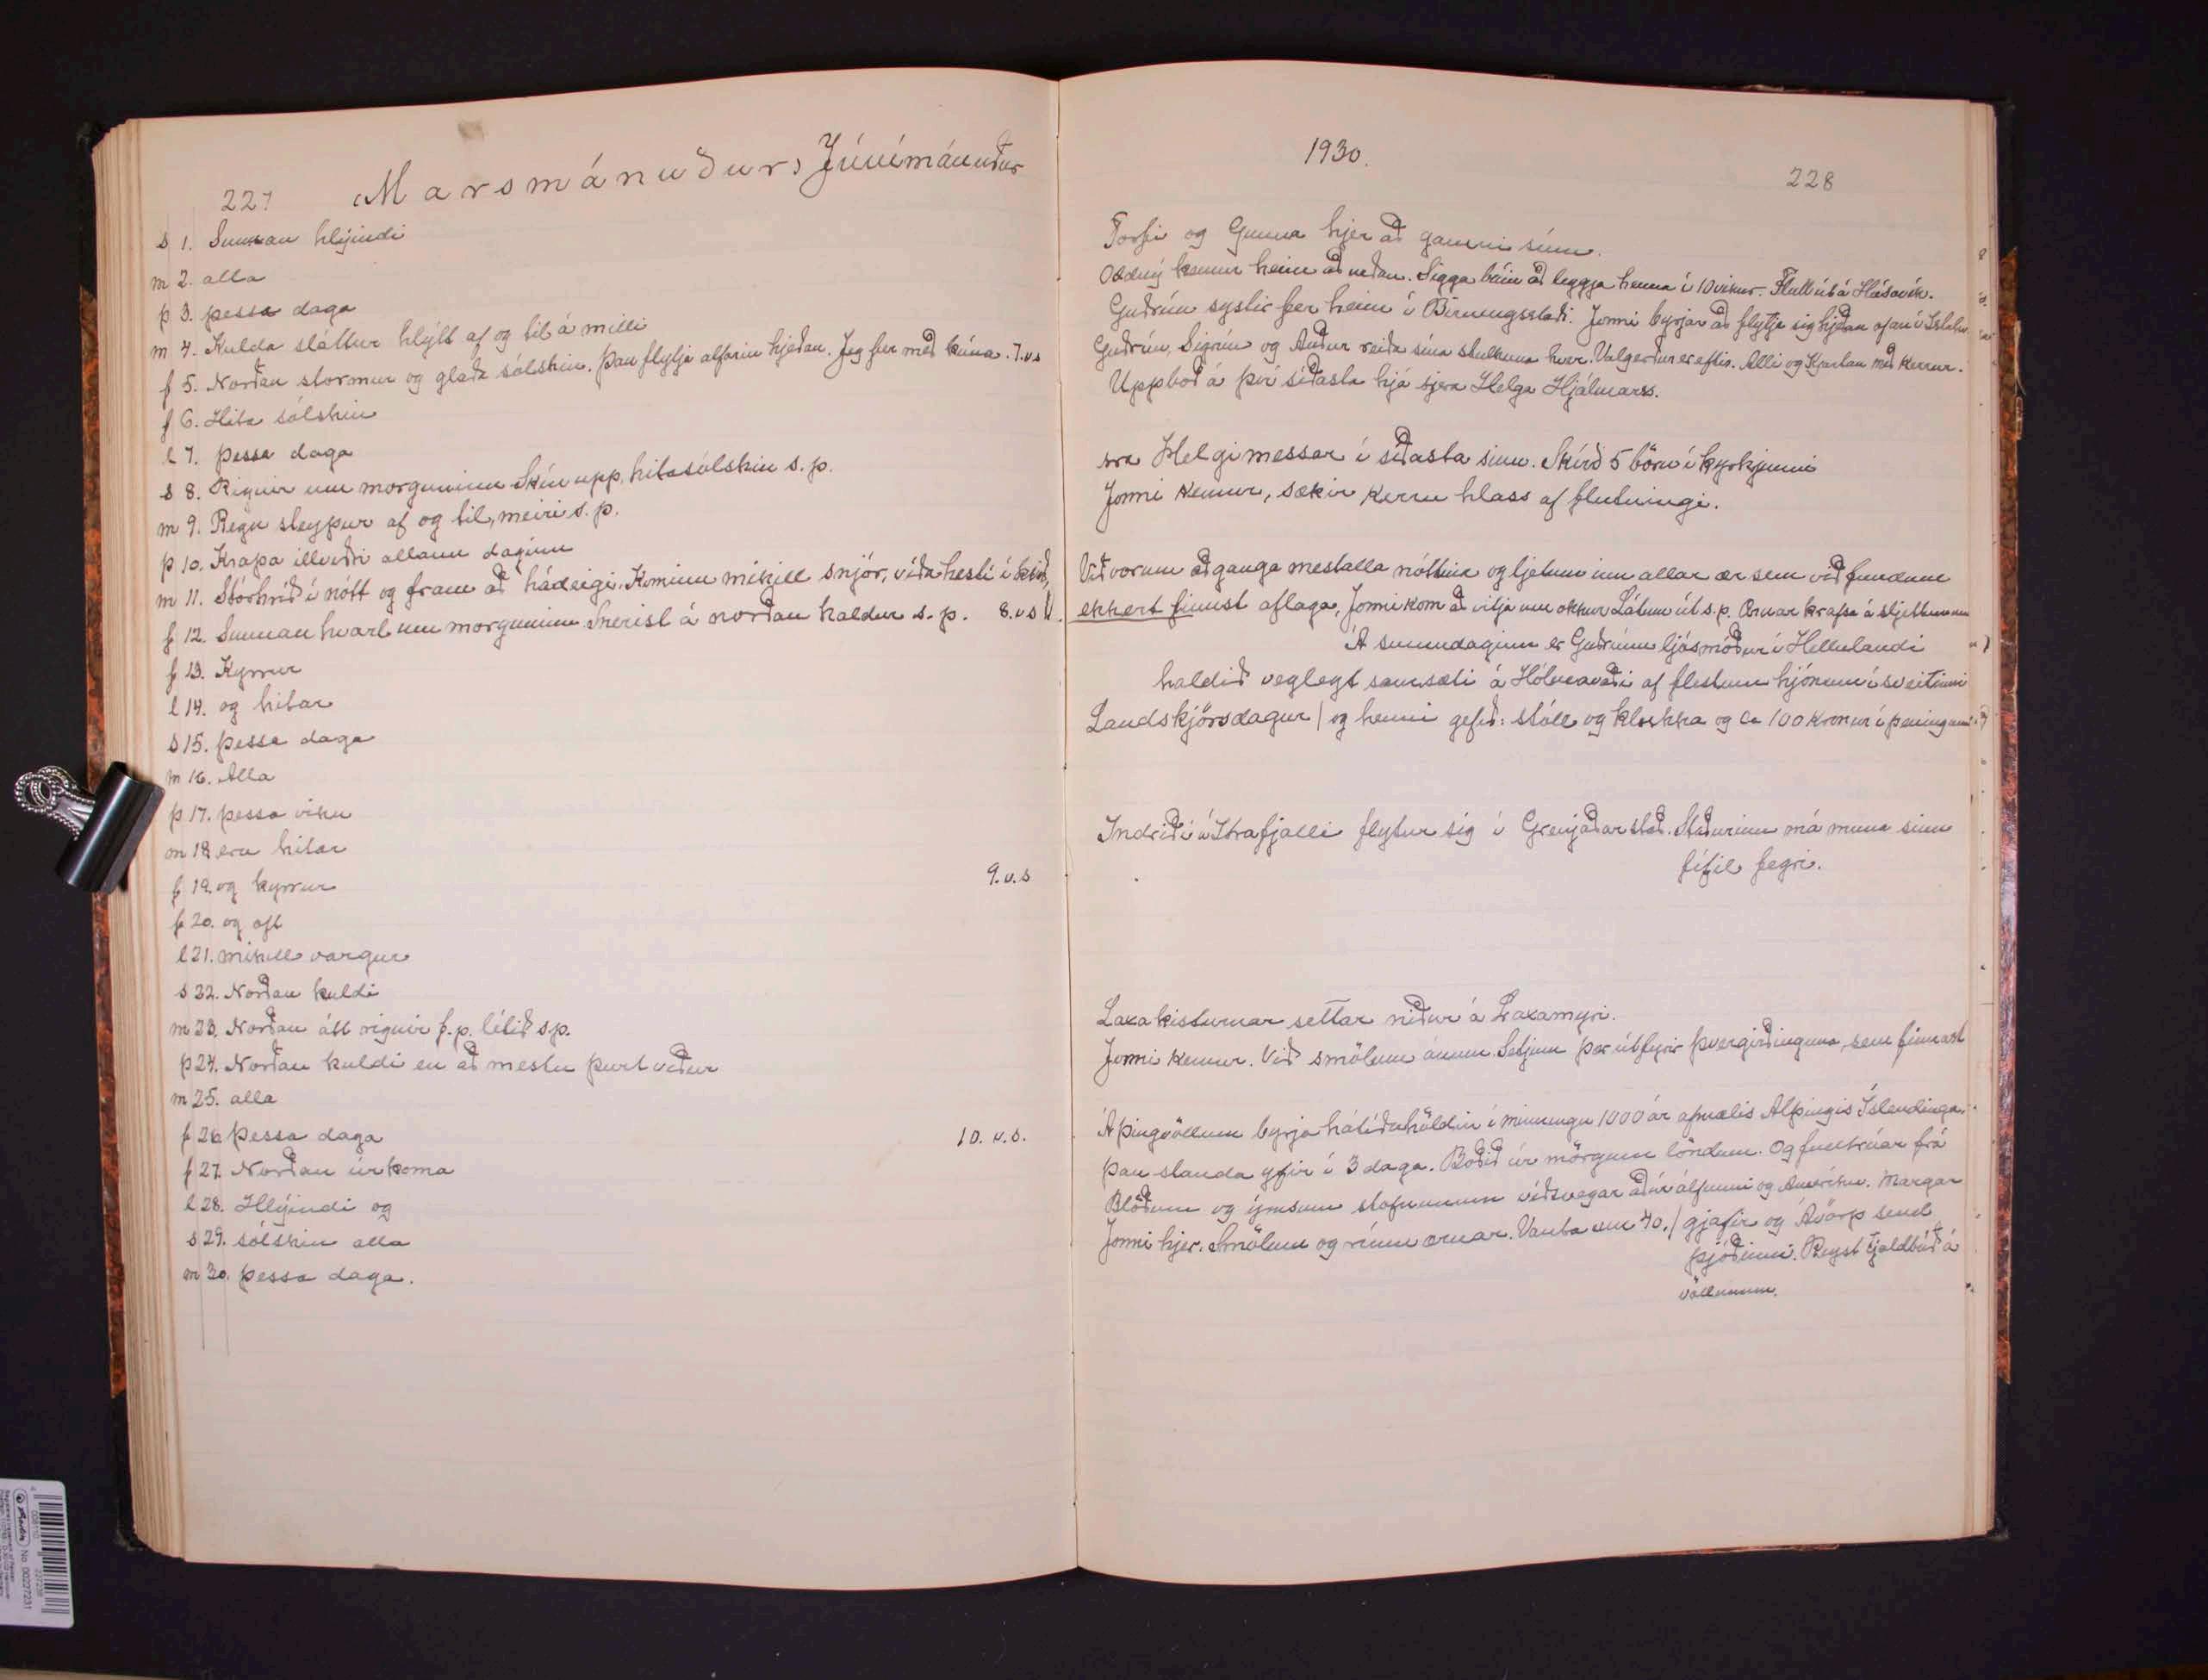 227 Marsmánuður, Júnímánuður
s 1. Sunnan hlýindi
m 2. alla
þ 3. þessa daga
m 4. Kulda sláttur hlýtt af og til á milli
f 5. Norðan stormur og glaða sólskin. Þau flytja alfarin hjeðan. Jeg fer með kúna. 7. v s
f 6. Hita sólskin
l 7. þessa daga
s 8. Rignir um morguninn Skín upp, hitasólskin s. p.
m 9. Regn steypur af og til, meiri s. p.
þ 10. Krapa illveðri allann daginn
m 11. Stórhríð í nótt og fram að hádeigi. Kominn mikill snjór, víða hesti í kvið,
f 12. Sunnan hvarl um morguninn Snerist á norðan kaldur s. p. 8. v s
f 13. Kyrrur
l 14. og hitar
s 15. þessa daga
m 16. Alla
þ 17. þessa viku
m 18. eru hitar
f 19. og kyrrur 9. v. s
f 20. og oft
l 21. mikill vargur
s 22. Norðan kuldi
m 23. Norðan átt rignir f. p. lítið s. p.
þ 24. Norðan kuldi en að mestu þurt veður
m 25. alla
f 26. þessa daga 10. v. s.
f 27. Norðan úrkoma
l 28. Hlýindi og
s 29. sólskin alla
m 30. þessa daga.
1930.
228
Torfi og Gunna hjer að gamni sínu.
Oddný kemur heim að neðan. Sigga búin að leggja henna í 10 vikur. Flutt út á Húsavík.
Guðrún systir fer heim í Birningsstaði. Jonni byrjar að flytja sig hjeðan ofan í
Guðrún, Sigrún og Auður reiða sína stulkuna hver. Valgerður er eftir. Alli og Kjartan með kerrur.
Uppboð á því síðasta hjá sjera Helga Hjálmarss.
sra Helgi messar í síðasta sinn. Skírð 5 börn í kyrkjunni
Jonni kemur, sækir kerru hlass af flutningi.
Við vorum að ganga mestalla nóttina og ljetum inn allar ær sem við fundum
ekkert finnst aflaga, Jonni kom að vitja um okkur Látum út s. p. Ærnar krafsa á sljettunum
Á sunnudaginn er Guðrúnu ljósmóður í Hellulandi
haldið veglegt samsæti á Hólmavaði af flestum hjónum í sveitinni
Landskjörsdagur / og henni gefið: stóll og klukka og ca 100 krónur í peningum
Indriði á Ytrafjalli flytur sig í Grenjaðarstað. Staðurinn má muna sinn
fífil fegri.
Laxakisturnar settar niður á Laxamyri.
Jonni kemur. Við smölum ánum. Setjum þær út fyrir þvergirðinguna, sem finnast
Á þingvöllum byrja hátíðahöldin í minningu 1000 ára afmælis Alþingis Íslendinga.
Þau standa yfir í 3 daga. Boðið úr mörgum löndum. Og fulltrúar frá
Blöðum og ýmsum stofnunum víðsvegar að úr álfunni og Ameríku. Margar
Jonni hjer. Smölum og rúum ærnar. Vanta um 40. / gjafir og Ávörp send
þjóðinni. Reyst tjaldbúð á
völlunum.